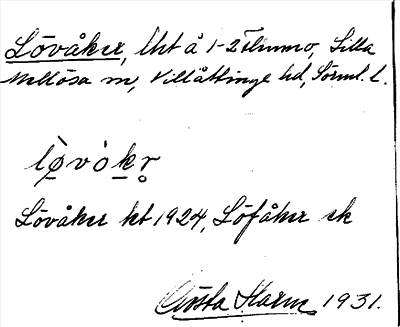 Lövåker, lht å 1-2 Flummo, Lilla
Mellösa sn, Villåttinge hd, Sörml. l.
lø̀vòkr̥
Lövåker kt 1924, Löfåker sk
Gösta Harm 1931.